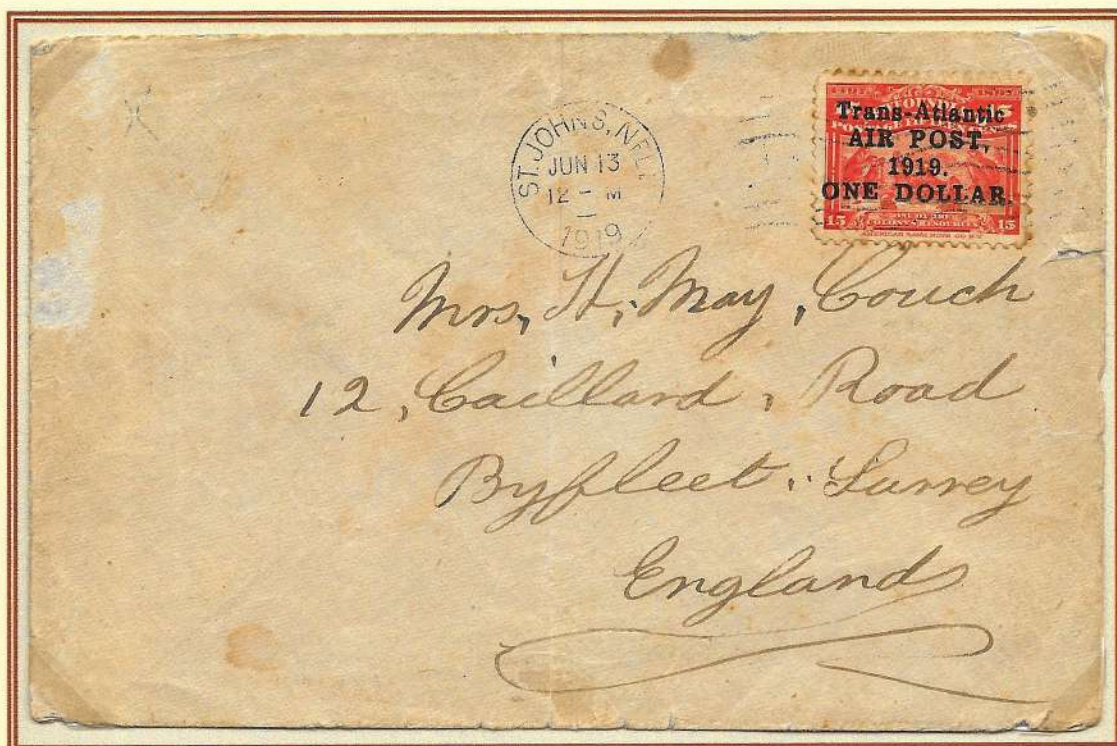 ST. JOHNS, NFLD
JUN 13
12 - M
1919
Trans-Atlantic
AIR POST,
1919.
ONE DOLLAR.
15 15
ONE OF THE
COLONY'S RESOURCES
Mrs, H, May, Couch
12, Caillard, Road
Byfleet. Surrey
England